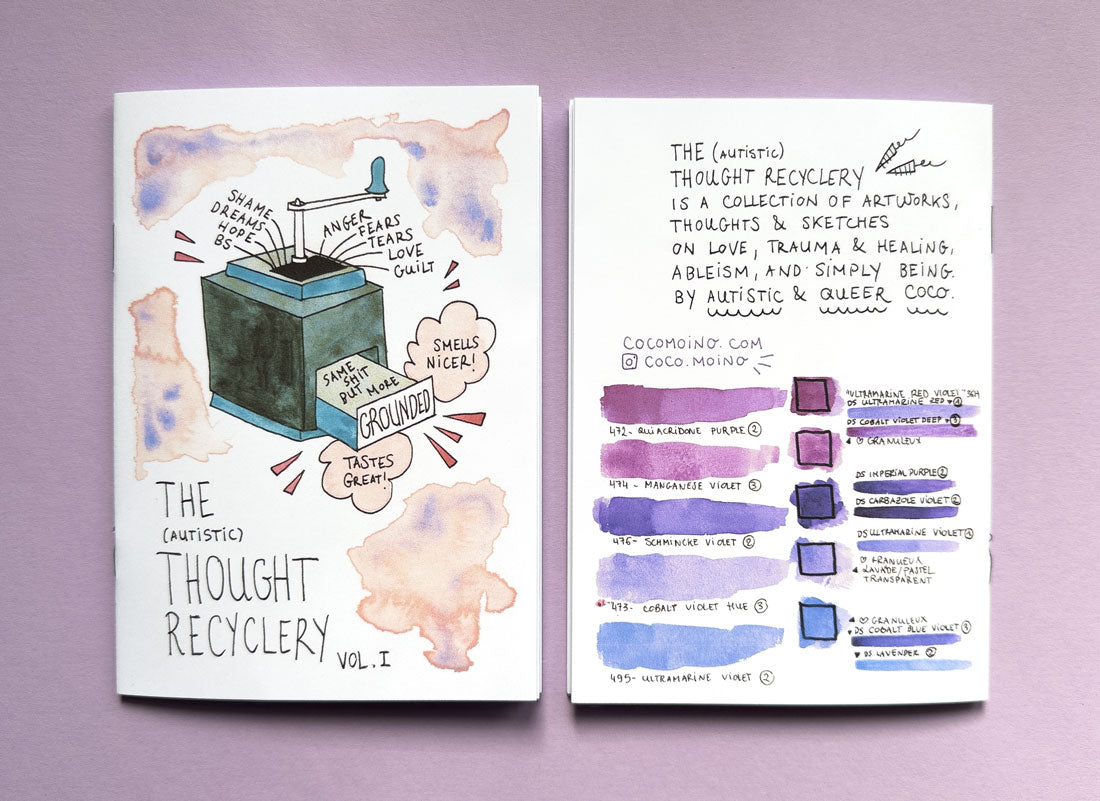 SHAME
DREAMS
HOPE
BS
ANGER
FEARS
TEARS
LOVE
GUILT
SMELLS
NICER!
SAME
SHIT
BUT MORE
GROUNDED
TASTES
GREAT!
THE
(AUTISTIC)
THOUGHT
RECYCLERY
VOL. I
THE (AUTISTIC)
THOUGHT RECYCLERY
IS A COLLECTION OF ARTWORKS,
THOUGHTS & SKETCHES
ON LOVE, TRAUMA & HEALING,
ABLEISM, AND SIMPLY BEING.
BY AUTISTIC & QUEER COCO.
COCOMOINO.COM
COCO.MOINO
472- QUIACRIDONE PURPLE 2
474 - MANGANESE VIOLET 3
476- SCHMINCKE VIOLET 2
473- COBALT VIOLET HUE 3
495- ULTRAMARINE VIOLET 2
"ULTRAMARINE RED VIOLET"
DS ULTRAMARINE RED
DS COBALT VIOLET DEEP
GRANULEUX
DS IMPERIAL PURPLE 2
DS CARBAZOLE VIOLET 2
DS ULTRAMARINE VIOLET 1
LAVADE/PASTEL
TRANSPARENT
GRANULEUX
DS COBALT BLUE VIOLET
DS LAVENDER 2